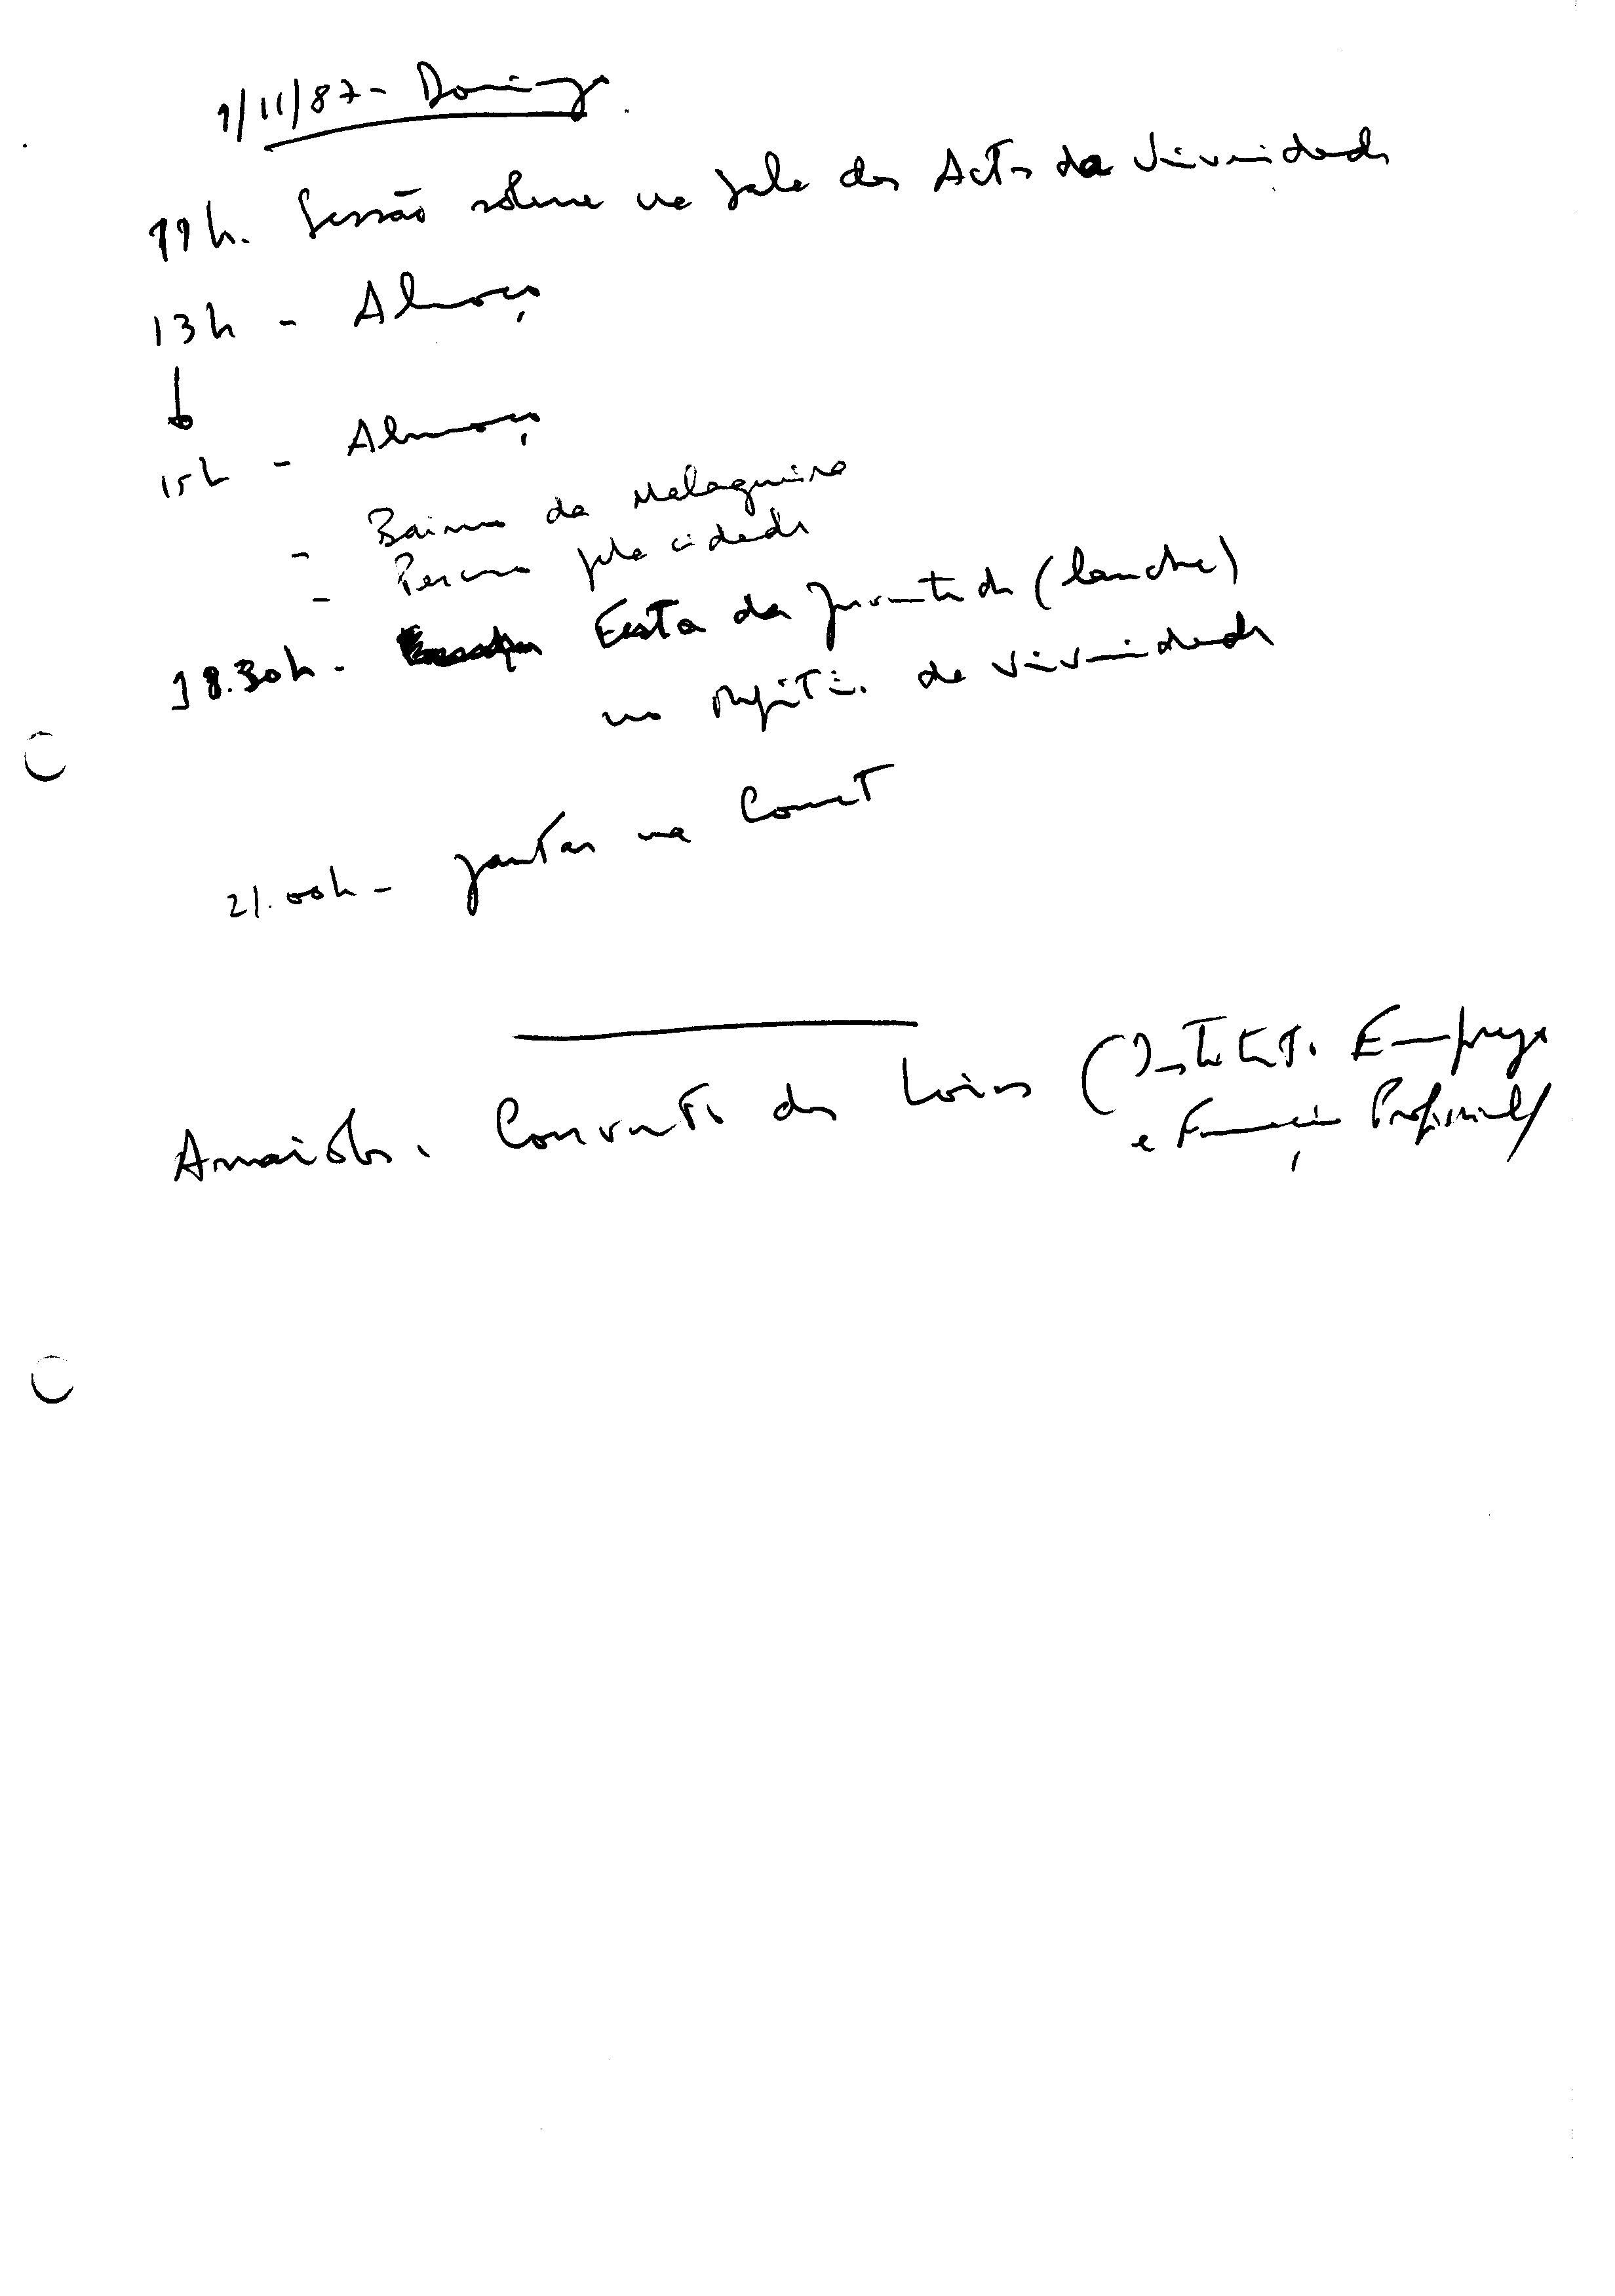 1/11/87 - Domingo
11h. Sessão solene na sala dos Actos da Universidade
13h - Almoço
15h - Almoço
- Bairro da Malagueira
- Percurso pela cidade
18.30h - Festa da Juventude (lanche)
no refeit. da Universidade
21.00h - jantar na Comet
Arraiolos. Convento dos Loios (Institut. Emprego
e Formação Profissional)